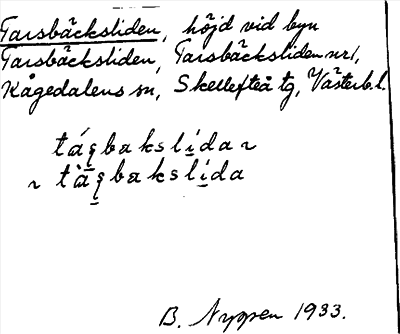 Tarsbäcksliden, höjd vid byn
Tarsbäcksliden, Tarsbäcksliden nr 1,
Kågedalens sn, Skellefteå tg, Västerb. l.
táşbakslída ~
~ tàşbakslída
B. Nygren 1933.